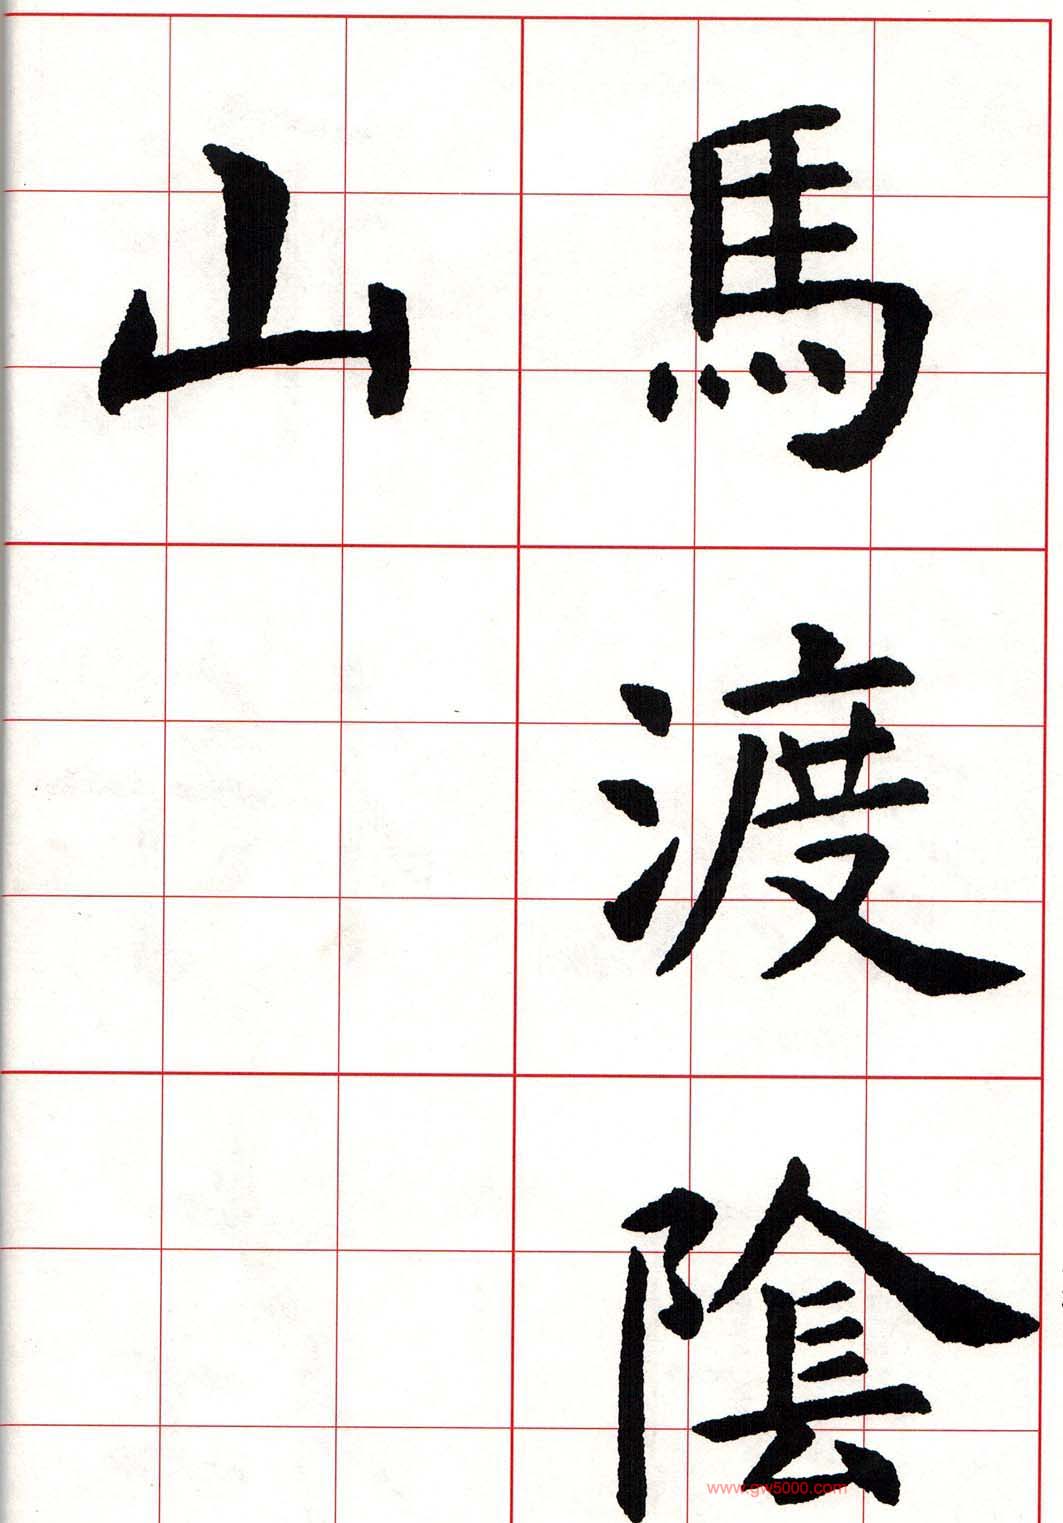 馬渡陰
山
www.gw5000.com